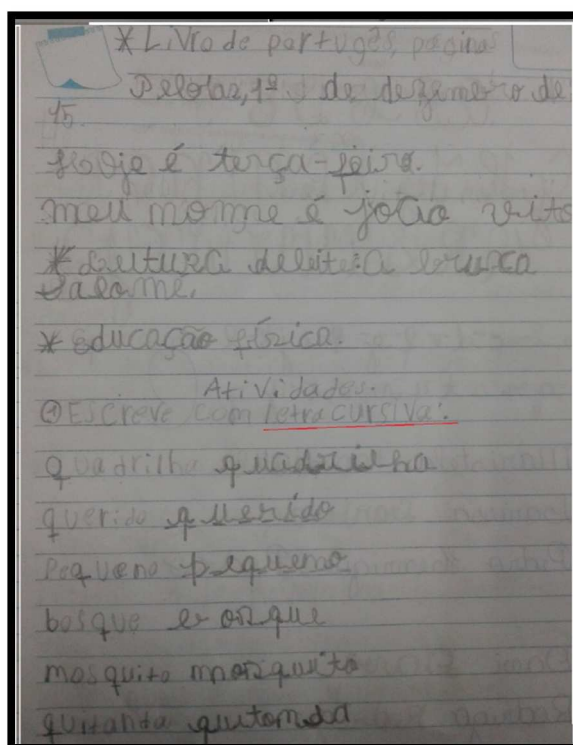 * Livro de portugês, páginas
Pelotas, 1º de dezameiro de
15.
Hoje é terça-feira.
meu nome é joão vito
* Leitura deleite: A bruxa
Salomé,
* Educação física.
Atividades.
① Escreve com letra cursiva:
quadrilha quadrilha
querido querido
pequeno pequeno
bosque bosque
mosquito mosquito
quitanda quitanda